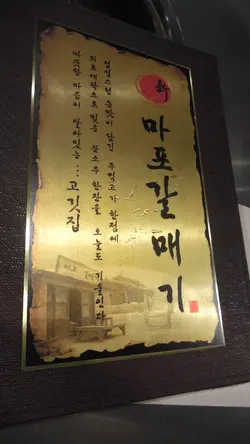 新
마포갈매기
손맛이 담긴 주먹고기 한점에
희로애락으로 빚은 쓴소주 한잔을 오늘도 기울인다
따뜻한 마음이 살아있는... 고깃집